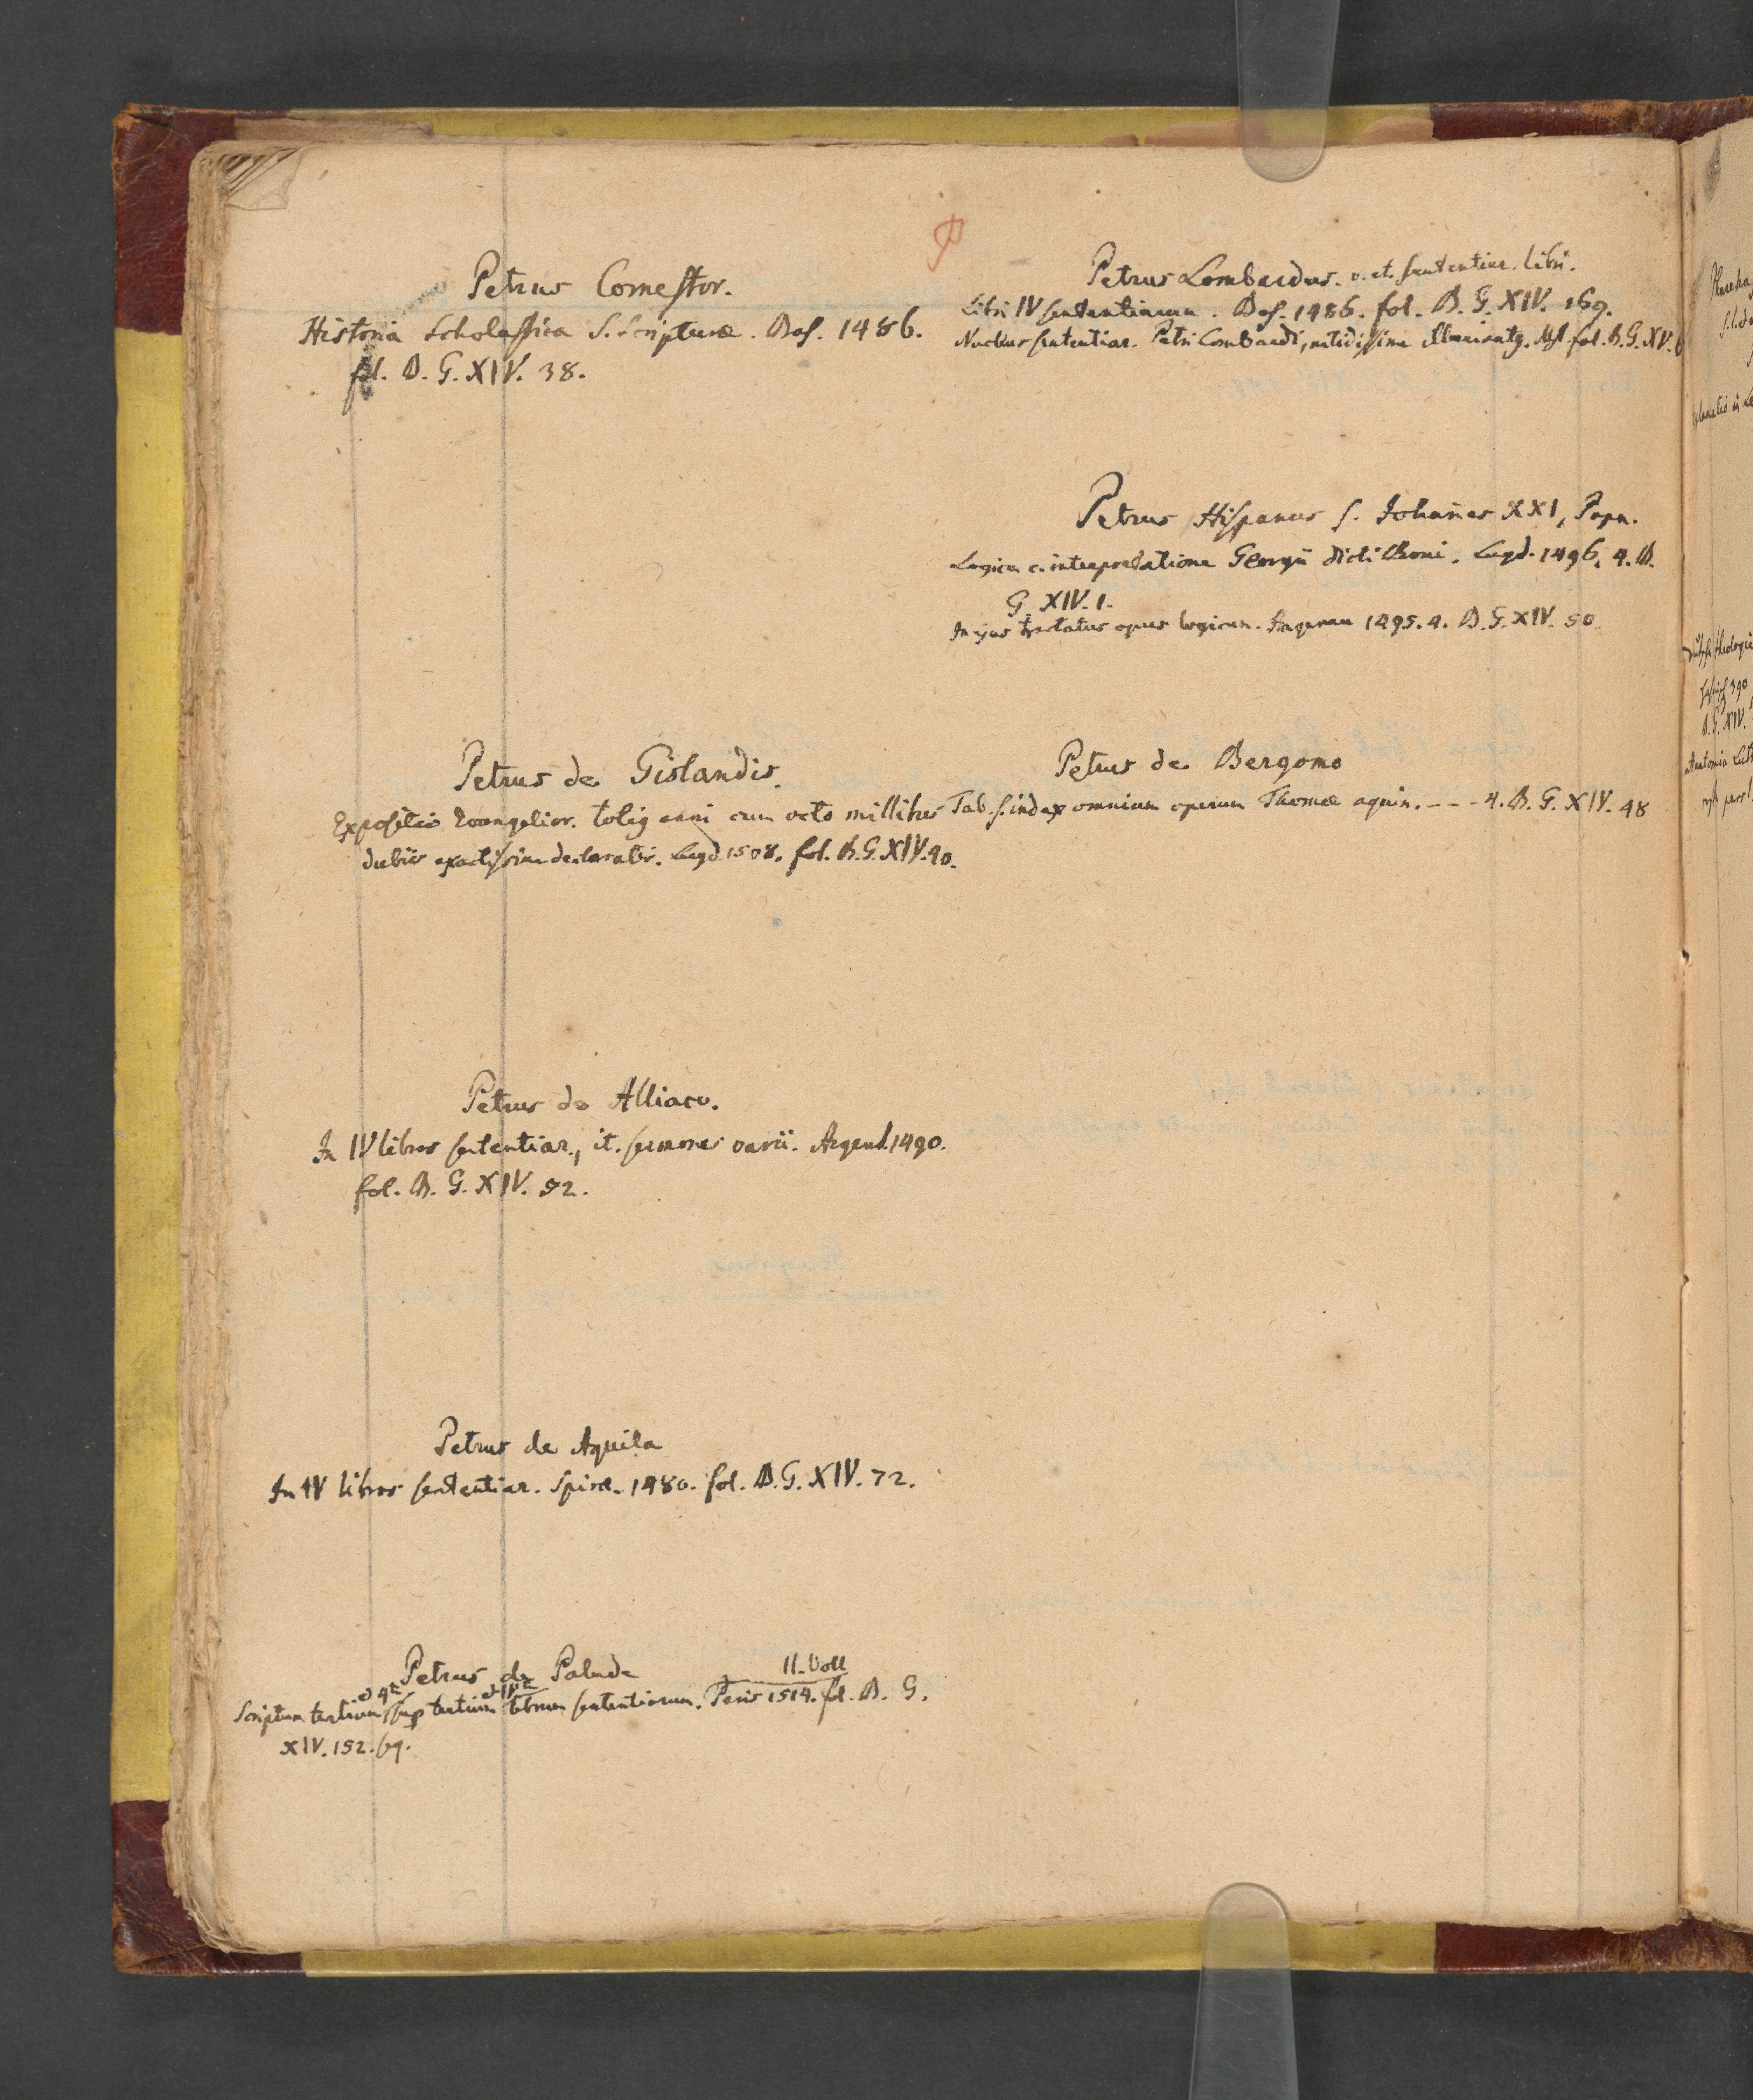 Petrus Comestor.
Historia Scholastica S. Scripturæ. Bas. 1486.
fol. B. G. XIV. 38.
Petrus de Gislandis.
Expositio Evangelior. totig anni cum octo millibus
dubiis exactissime declaratis. Lugd. 1508. fol. B. G. XIV. 40.
Petrus de Alliaco.
In IV libros sententiar., it. sermones varii. Argent. 1490.
fol. B. G. XIV. 52.
Petrus de Aquila
In IV libros sententiar. Spiræ. 1480. fol. B. G. XIV. 72.
Petrus de Palude
II. Voll
Scriptum tertium et 4m sup tertium et IVm librum sententiarum. Paris 1514. fol. B. G.
XIV. 152. sq.
Petrus Lombardus. v. et. sententiar. libri.
Libri IV sententiarum. Bas. 1486. fol. B. G. XIV. 169.
Nucleus sententiar. Petri Lombardi, nitidissime Mst. fol. B. G. XV.
Petrus Hispanus s. Johañes XXI, Papa.
Logica c. interpretatione Georgii dicti Lugd. 1496. 4. B.
G. XIV. 1.
In ejus tractatus opus logicum. Hagenau 1495. 4. B. G. XIV. 50
Petrus de Bergomo
Tab. s. index omnium operum Thomæ aquin. - - - 4. B. G. XIV. 48